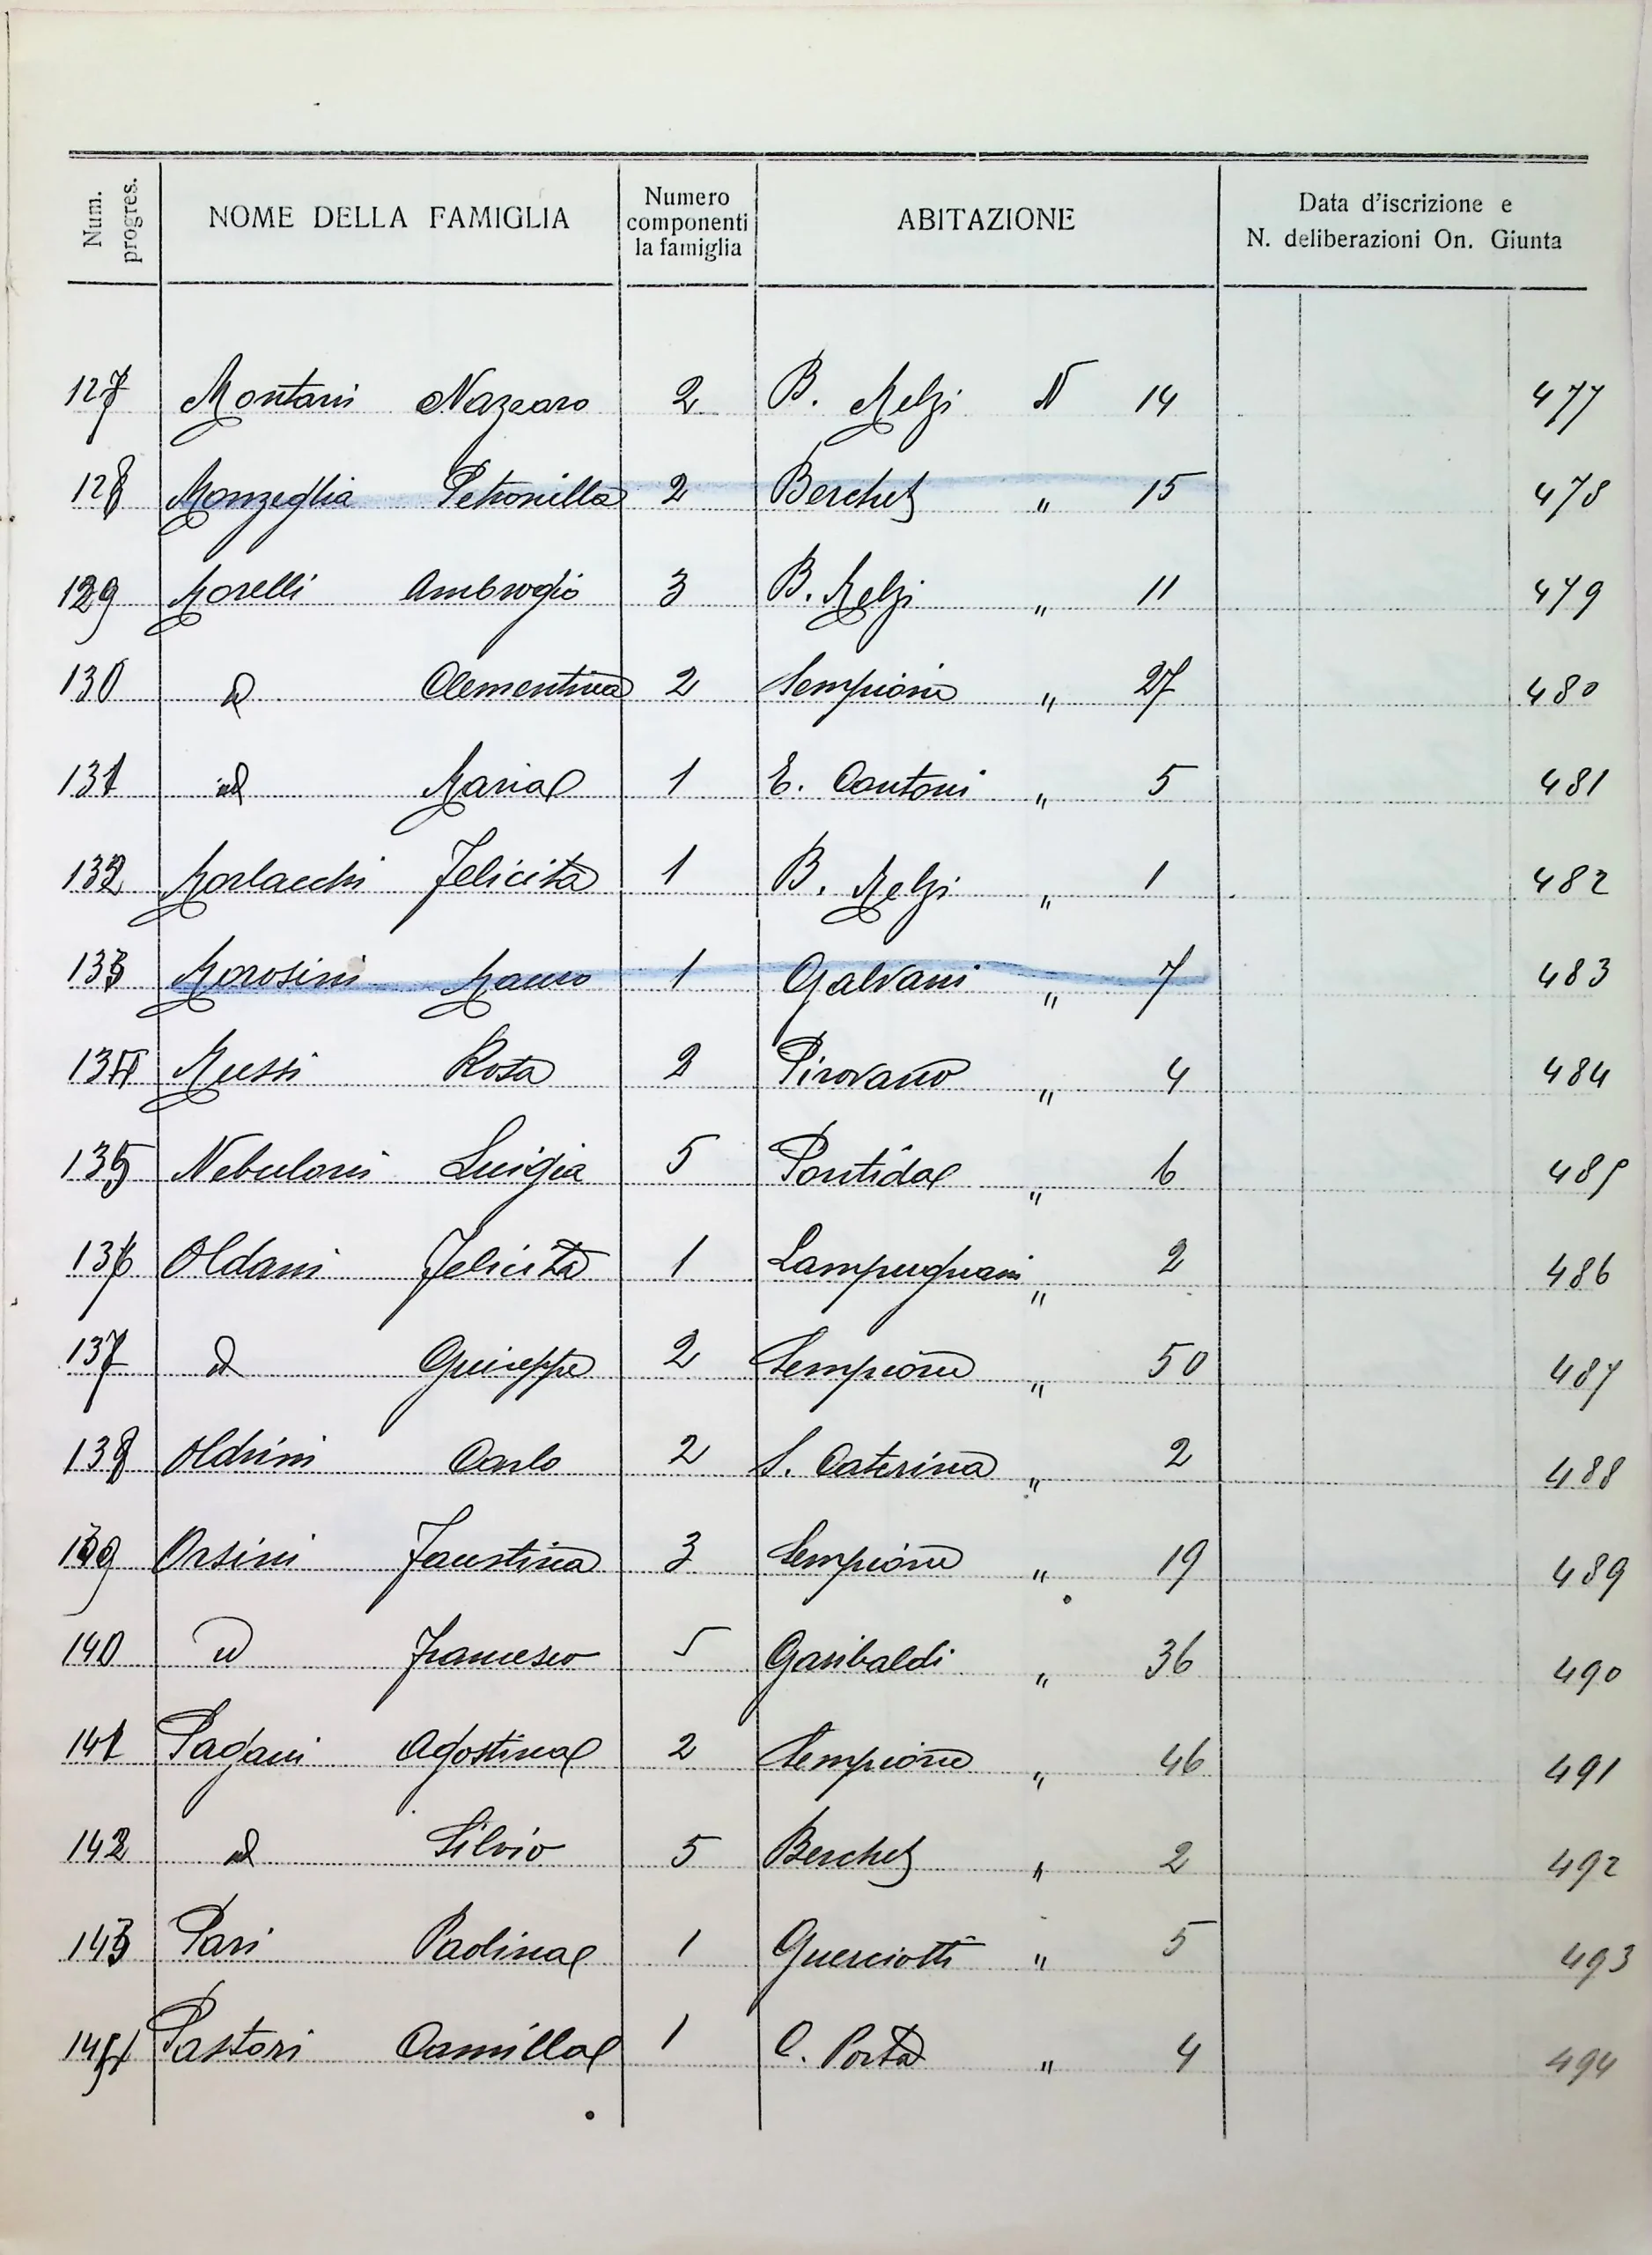 Num. progres. NOME DELLA FAMIGLIA Numero componenti la famiglia ABITAZIONE Data d'iscrizione e N. deliberazioni On. Giunta
127 Montani Nazzaro 2 B. Melzi N 14 477
128 Monzeglia Petronilla 2 Berchet " 15 478
129 Morelli Ambrogio 3 B. Melzi " 11 479
130 id Clementina 2 Sempione " 27 480
131 id Maria 1 E. Cantoni " 5 481
132 Morlacchi Felicita 1 B. Melzi " 1 482
133 Morosini Mauro 1 Galvani " 7 483
134 Mussi Rosa 2 Pirovano " 4 484
135 Nebuloni Luigia 5 Pontida " 6 485
136 Oldani Felicita 1 Lampugnani " 2 486
137 id Giuseppe 2 Sempione " 50 487
138 Oldrini Carlo 2 S. Caterina " 2 488
139 Orsini Faustina 3 Sempione " 19 489
140 id Francesco 5 Garibaldi " 36 490
141 Pagani Agostina 2 Sempione " 46 491
142 id Silvio 5 Berchet " 2 492
143 Pari Paolina 1 Guerciotti " 5 493
144 Pastori Camilla 1 C. Porta " 4 494